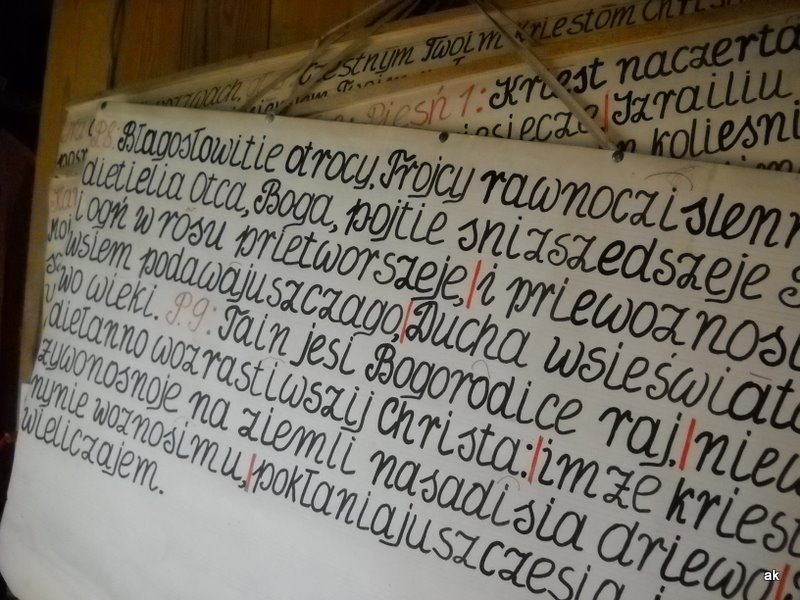 czestnym Twoim kriestom Chris
Piesń 1: Kriest naczerta
miesięcze | Izrailiu
koliesni
P.8: Błagosłowitie otrocy, Trojcy rawnoczislenn
dietielia Otca, Boga, pojtie snizszedszeje S
i ogń w rosu prietworszeje, | i priewoznosi
wsiem podawajuszczago | Ducha wsieświato
wo wieki. P.9: Tain jesi Bogorodice raj, | niew
diełanno wozrastiwszij Christa: | imże kriest
żywonosnoje na ziemli nasadisia driewo | S
nynie woznosimu, | pokłaniajuszczesia
wieliczajem.
ak